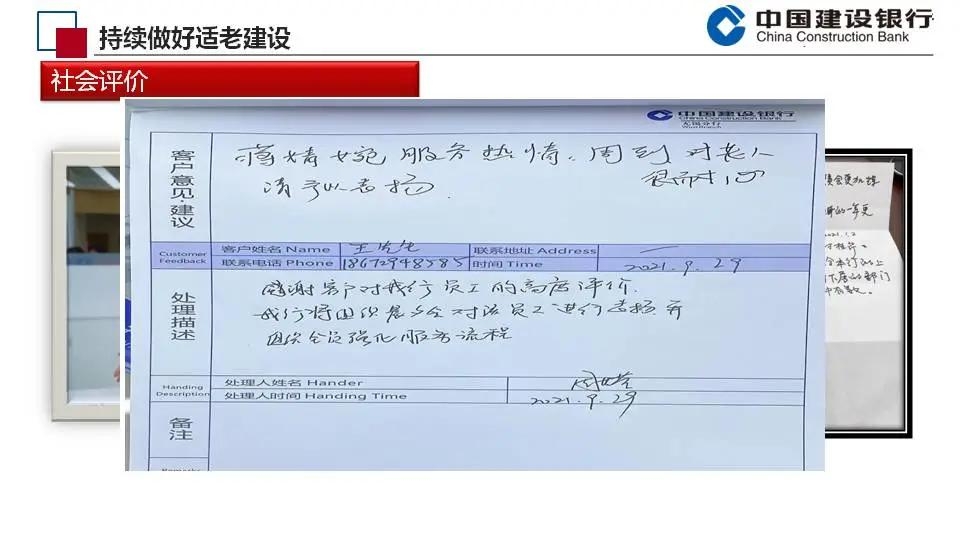 持续做好适老建设
中国建设银行
China Construction Bank
社会评价
中国建设银行
China Construction Bank
无锡分行
Wuxi Branch
客户意见·建议
蒋婧婉服务热情、周到对老人
很耐心
请予以表扬.
Customer Feedback
客户姓名 Name 王先生 联系地址 Address —
联系电话 Phone 18672948585 时间 Time 2021.9.29
处理描述
感谢客户对我行员工的高度评价.
我行将组织晨会对该员工进行表扬并
强化服务流程
Handing Description
处理人姓名 Hander
处理人时间 Handing Time 2021.9.29
备注
Remarks
2021.1.2